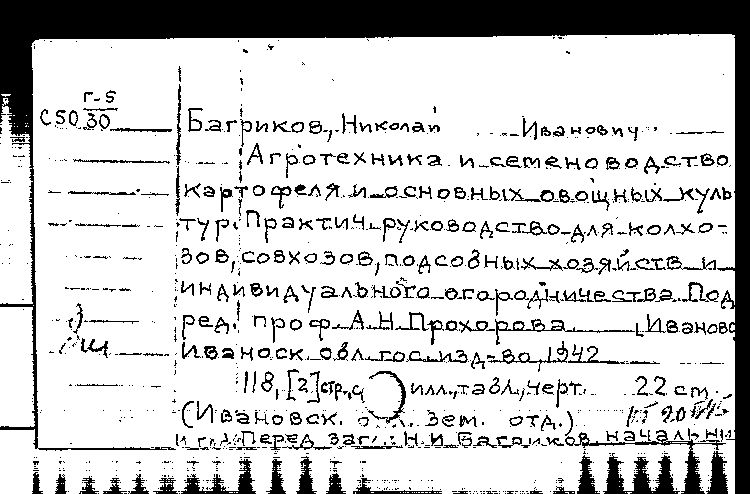 Г-5
С50 30
Багриков, Николай Иванович
Агротехника и семеноводство
картофеля и основных овощных куль
тур. Практич. руководство для колхо-
зов, совхозов, подсобных хозяйств и
индивидуального огородничества. Под
ред. проф. А.Н. Прохорова [Иваново
Иваноск. обл. гос. изд-во, 1942
118, [2] стр., с илл., табл., черт. 22 cm.
(Ивановск. зем. отд.)
Перед заг.: Н.И. Багриков, начальни